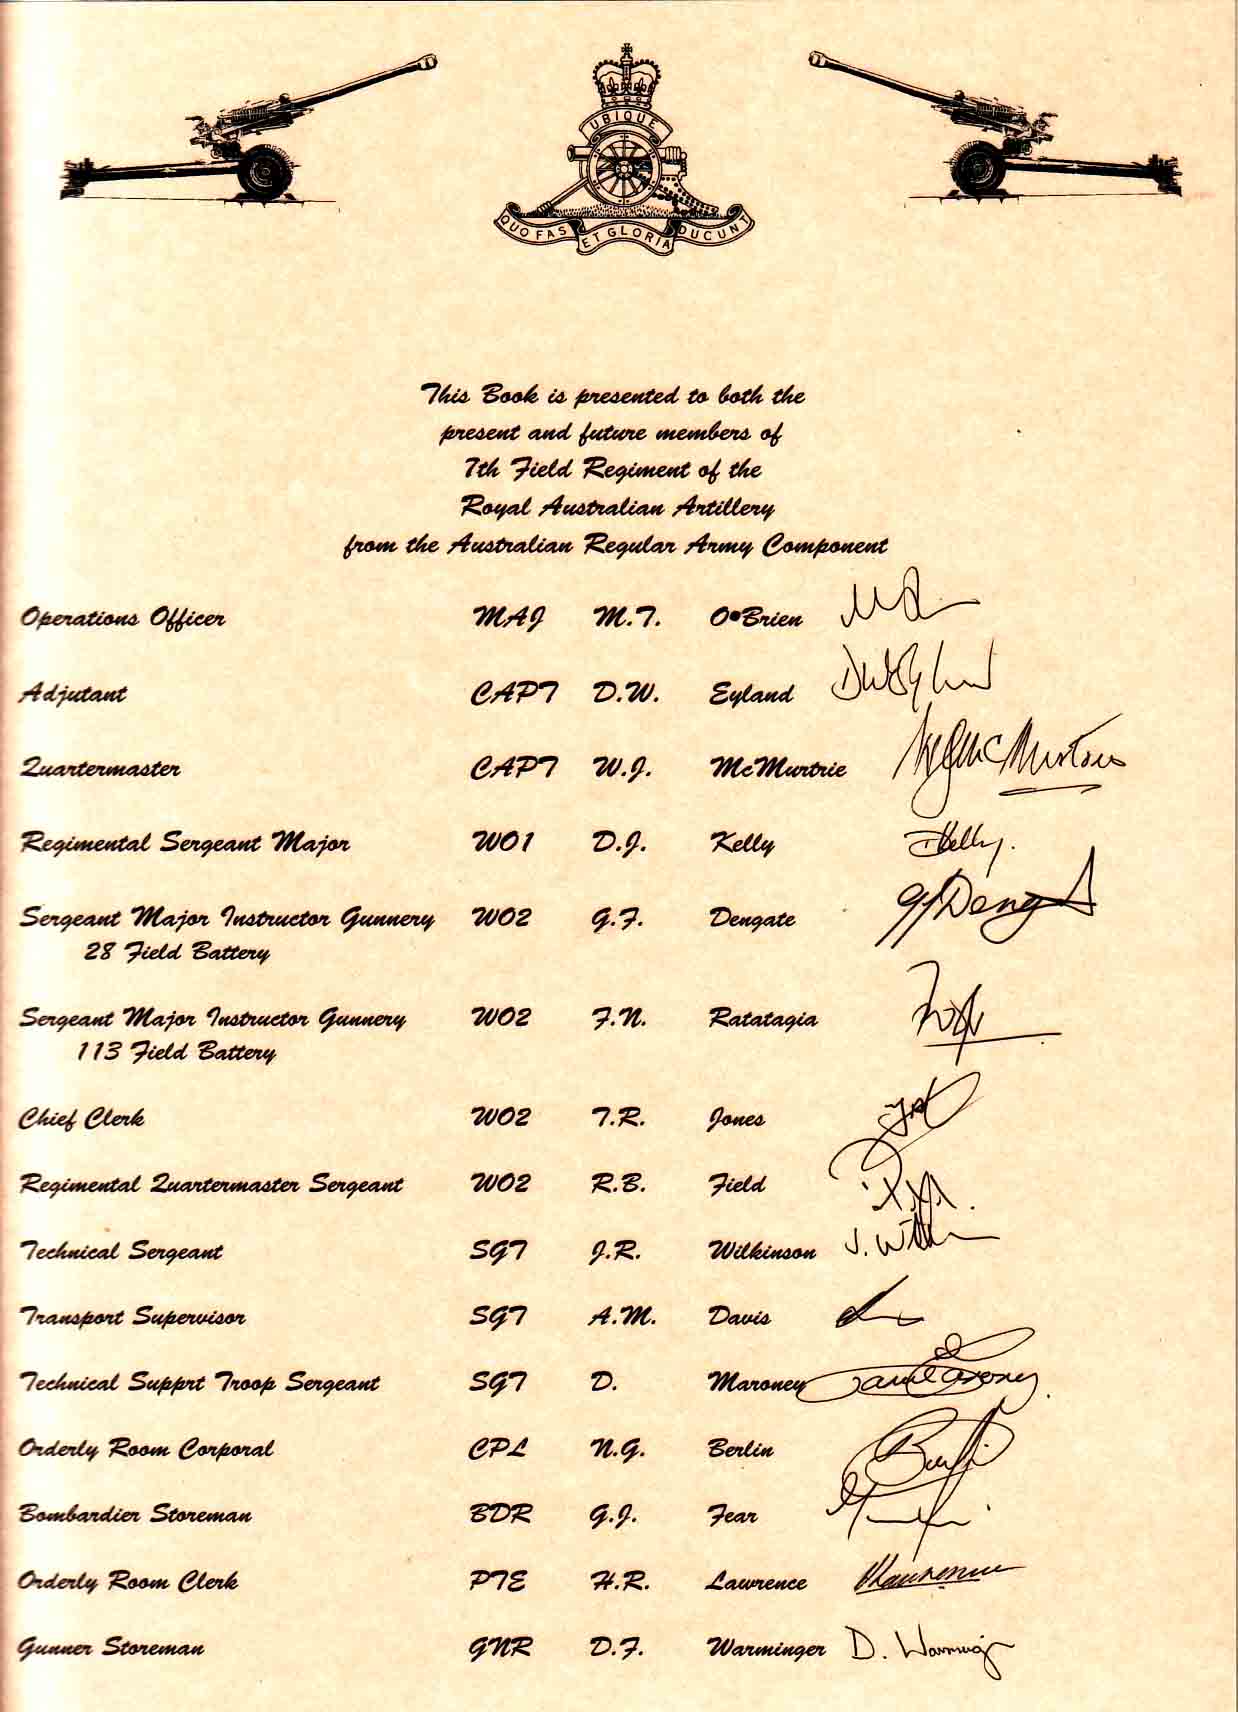 UBIQUE
QUO FAS ET GLORIA DUCUNT
This Book is presented to both the
present and future members of
7th Field Regiment of the
Royal Australian Artillery
from the Australian Regular Army Component
Operations Officer MAJ M.T. O•Brien
Adjutant CAPT D.W. Eyland
Quartermaster CAPT W.J. McMurtrie WJMcMurtrie
Regimental Sergeant Major WO1 D.J. Kelly DKelly.
Sergeant Major Instructor Gunnery WO2 G.F. Dengate
28 Field Battery
Sergeant Major Instructor Gunnery WO2 F.N. Ratatagia
113 Field Battery
Chief Clerk WO2 T.R. Jones
Regimental Quartermaster Sergeant WO2 R.B. Field
Technical Sergeant SGT J.R. Wilkinson
Transport Supervisor SGT A.M. Davis
Technical Supprt Troop Sergeant SGT D. Maroney
Orderly Room Corporal CPL N.G. Berlin
Bombardier Storeman BDR G.J. Fear
Orderly Room Clerk PTE H.R. Lawrence
Gunner Storeman GNR D.F. Warminger D. Warminger